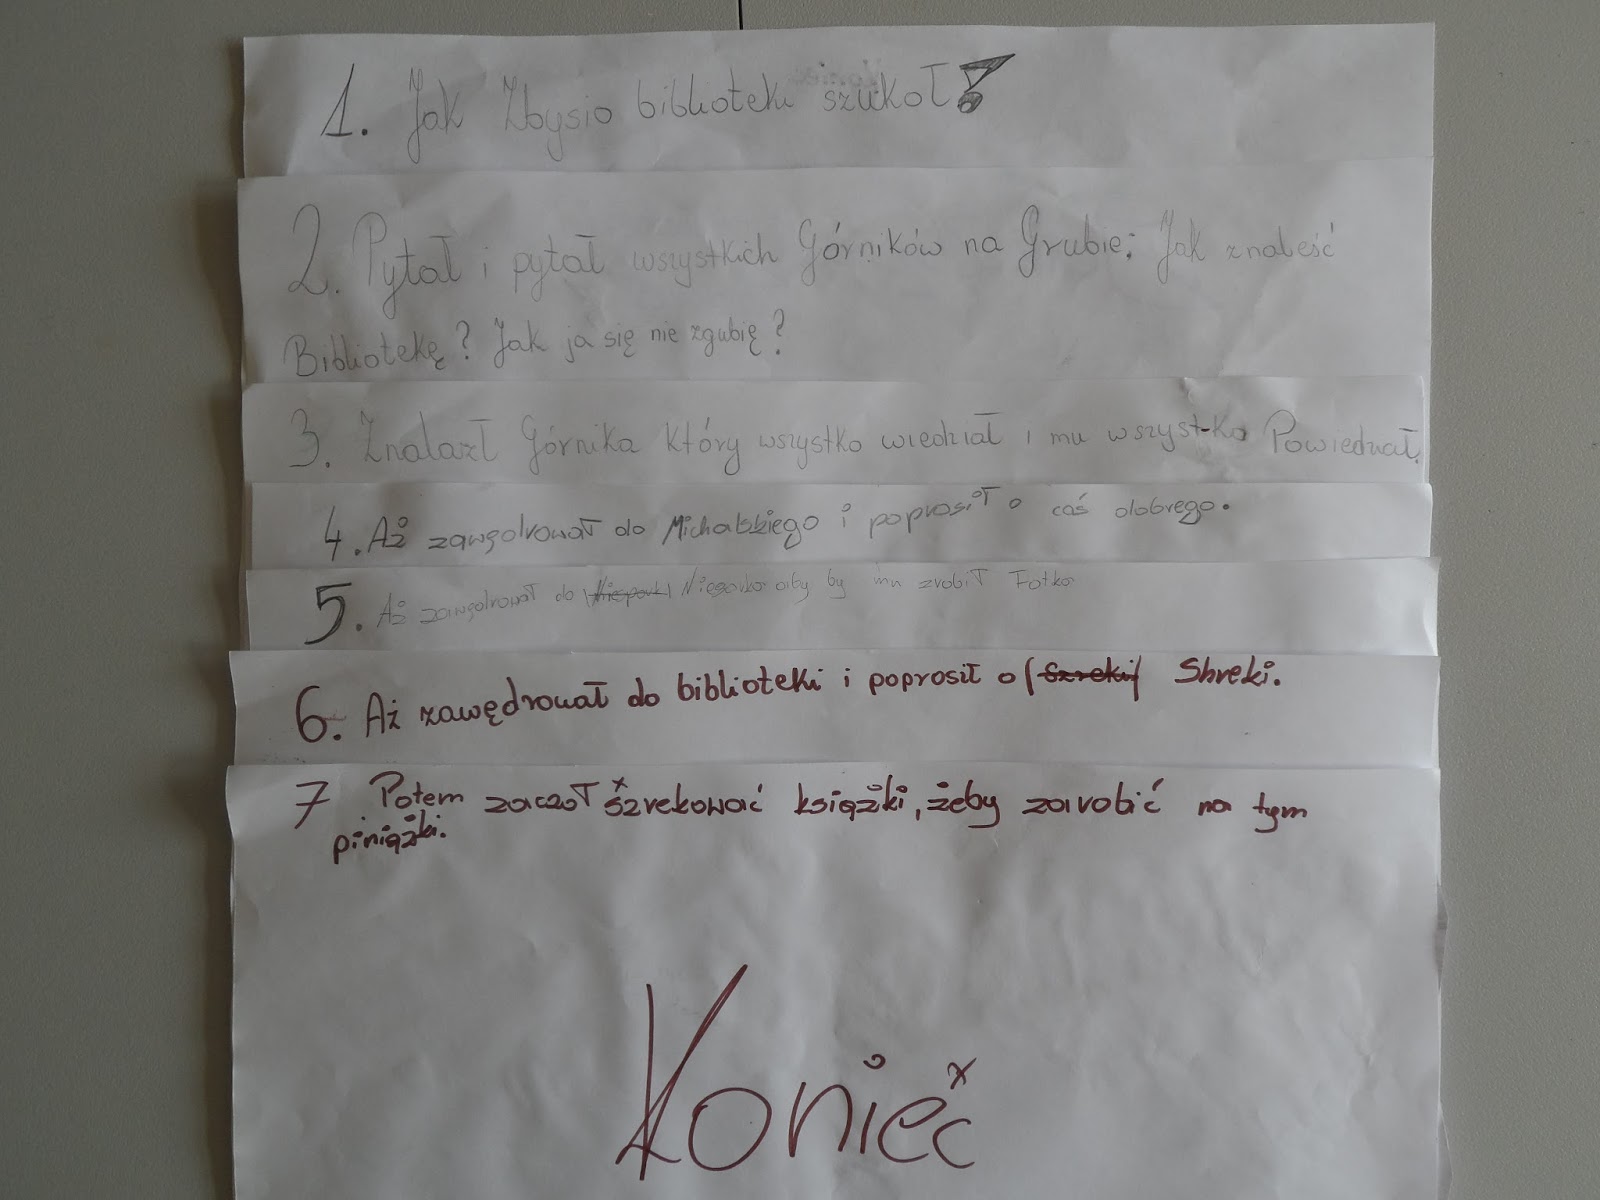 1. Jak Zbysio biblioteki szukoł!
2. Pytał i pytał wszystkich Górników na Grubie: Jak znaleść
Bibliotekę? Jak ja się nie zgubię?
3. Znalazł Górnika który wszystko wiedział i mu wszystko Powiedział.
4. Aż zawędrował do Michalskiego i poprosił o coś dobrego.
5. Aż zawędrował do by mu zrobił Fotka
6. Aż zawędrował do biblioteki i poprosił o (Szreki) Shreki.
7 Potem zaczoł szrekować książki, żeby zarobić na tym
piniążki.
Koniec